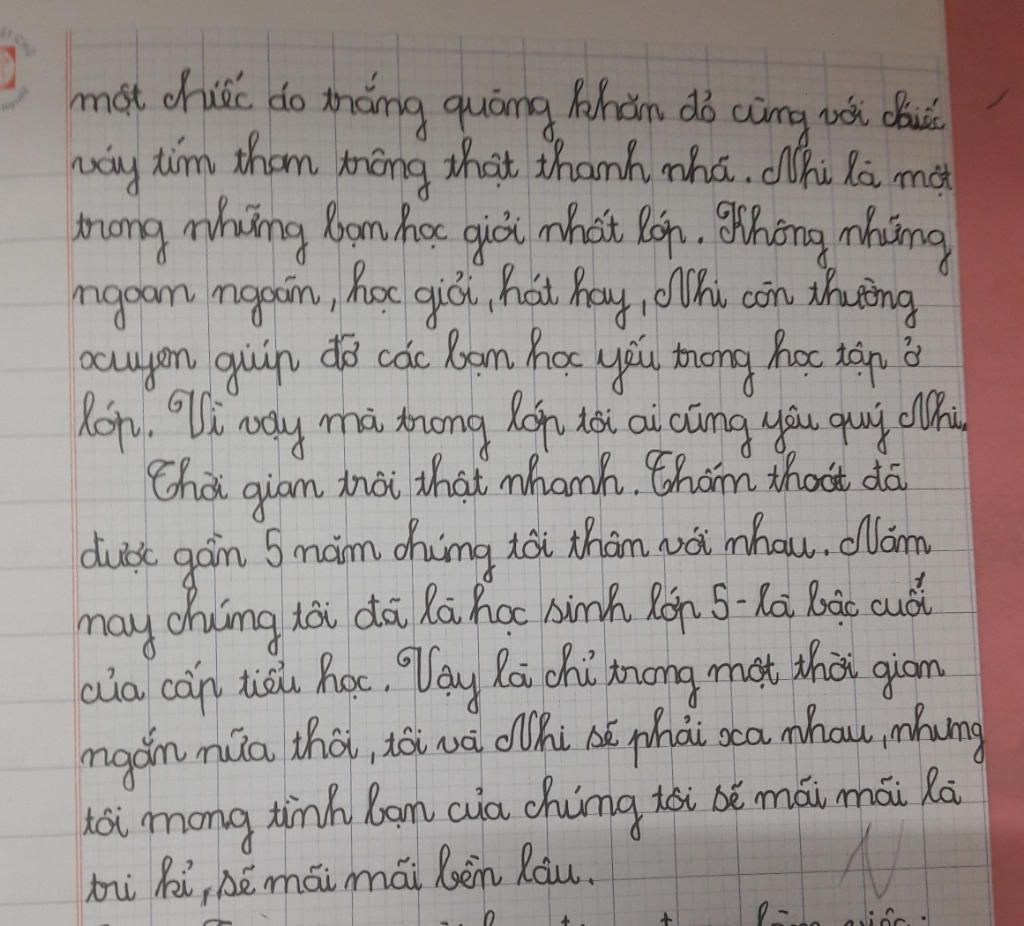 một chiếc áo trắng quàng khăn đỏ cùng với chiếc
váy tím than trông thật thanh nhã. Nhi là một
trong những bạn học giỏi nhất lớp. Không những
ngoan ngoãn, học giỏi, hát hay, Nhi còn thường
xuyên giúp đỡ các bạn học yếu trong học tập ở
lớp. Vì vậy mà trong lớp tôi ai cũng yêu quý Nhi.
Thời gian trôi thật nhanh. Thấm thoát đã
được gần 5 năm chúng tôi thân với nhau. Năm
nay chúng tôi đã là học sinh lớp 5 - là bậc cuối
của cấp tiểu học. Vậy là chỉ trong một thời gian
ngắn nữa thôi, tôi và Nhi sẽ phải xa nhau, nhưng
tôi mong tình bạn của chúng tôi sẽ mãi mãi là
tri kỉ, sẽ mãi mãi bền lâu.